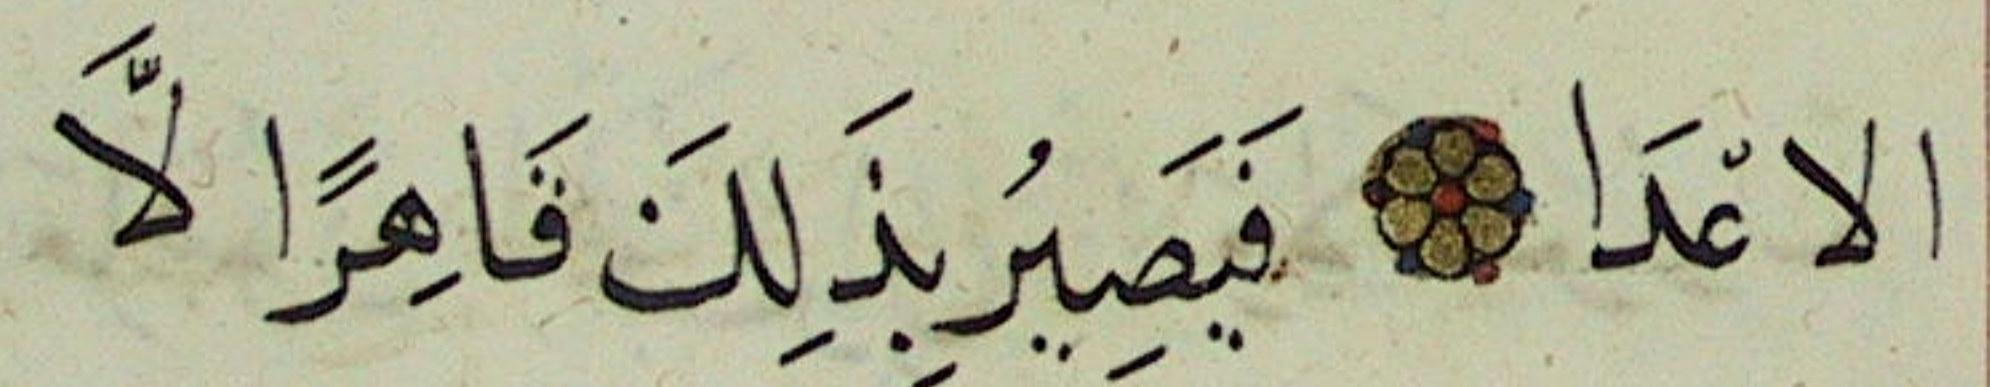 الاعْدَا فَيَصِيرُ بِذَلِكَ قَاهِرًا لَّا